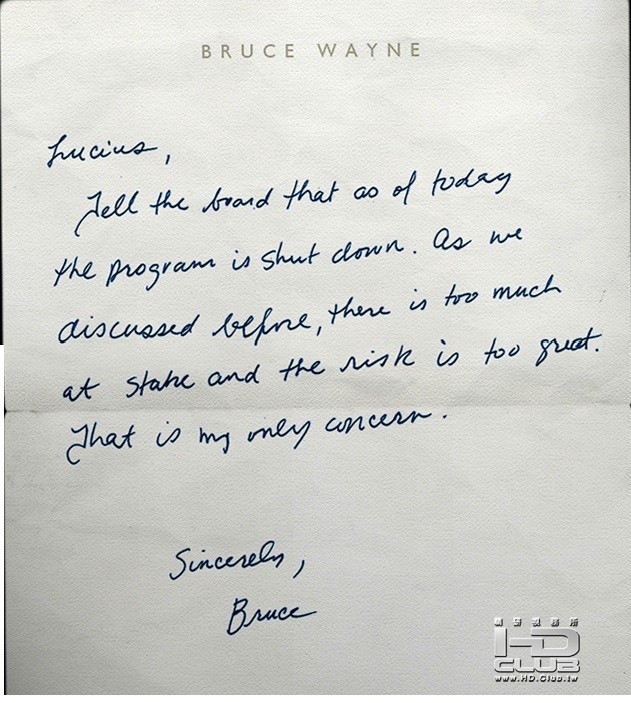 BRUCE WAYNE
Lucius,
Tell the board that as of today
the program is shut down. As we
discussed before, there is too much
at stake and the risk is too great.
That is my only concern.
Sincerely,
Bruce
HD
CLUB
www.HD.Club.tw